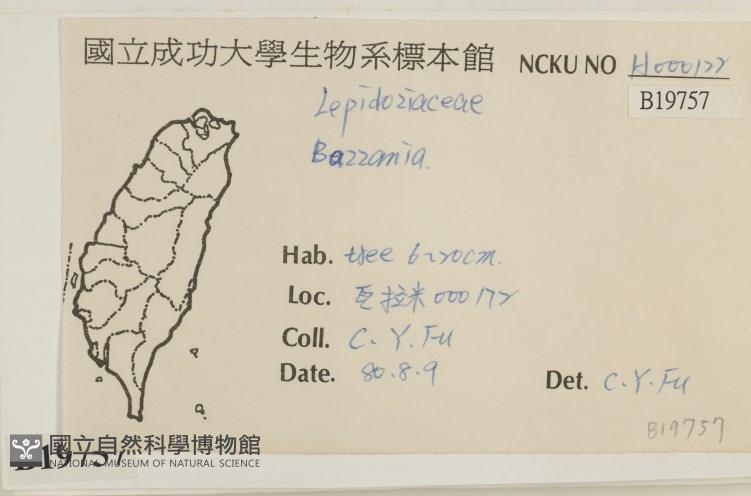 國立成功大學生物系標本館 NCKU NO H000122
B19757
Lepidoziaceae
Bazzania.
Hab. tree 6~20cm.
Loc. 瓦拉米000172
Coll. C. Y. Fu
Date. 80.8.9
Det. C. Y. Fu
B19757
國立自然科學博物館
NATIONAL MUSEUM OF NATURAL SCIENCE
B19757